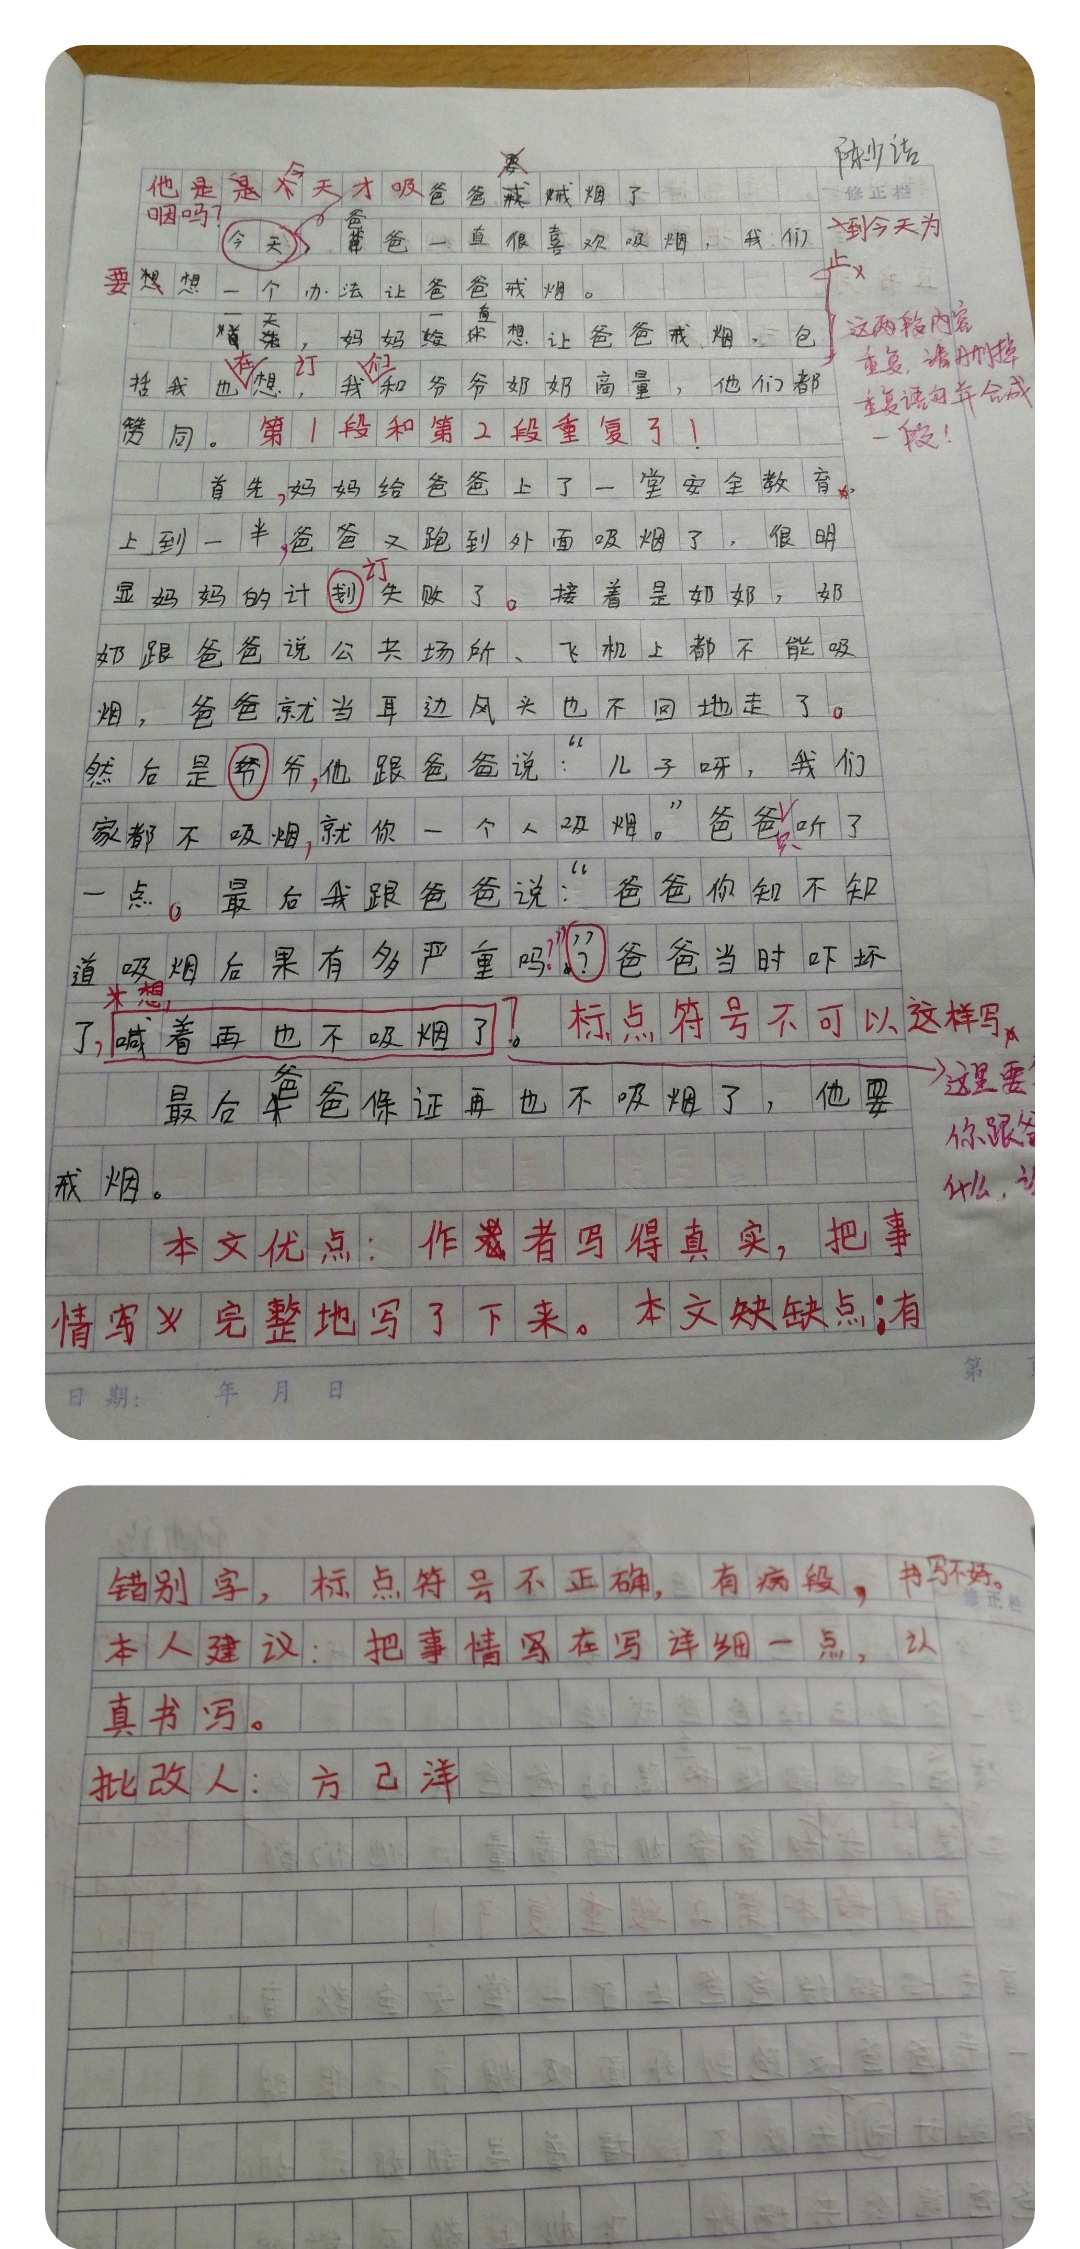 陈少洁
他是是不今天才吸爸爸戒烟了
烟吗?
修正栏
今天,爸爸一直很喜欢吸烟,我们
到今天为止
要想想一个办法让爸爸戒烟。
一天,妈妈一直想让爸爸戒烟,包
括我也在想,我们和爷爷奶奶商量,他们都
订
赞同。第1段和第2段重复了!
这两段内容
重复,请删掉
重复语句并合成
一段!
首先,妈妈给爸爸上了一堂安全教育,
上到一半,爸爸又跑到外面吸烟了,很明
显妈妈的计划失败了。接着是奶奶,奶
订
奶跟爸爸说公共场所、飞机上都不能吸
烟,爸爸就当耳边风头也不回地走了。
然后是爷爷,他跟爸爸说:“儿子呀,我们
家都不吸烟,就你一个人吸烟。”爸爸只听了
一点。最后我跟爸爸说:“爸爸你知不知
道吸烟后果有多严重吗?”爸爸当时吓坏
了,喊着再也不吸烟了。标点符号不可以这样写
这里要
你跟爸
什么,
最后爸爸保证再也不吸烟了,他要
戒烟。
本文优点:作者写得真实,把事
情写完整地写了下来。本文缺缺点:有
日期: 年 月 日
第
错别字,标点符号不正确,有病段,书写不好。
修正栏
本人建议:把事情写在写详细一点,认
真书写。
批改人:方己洋